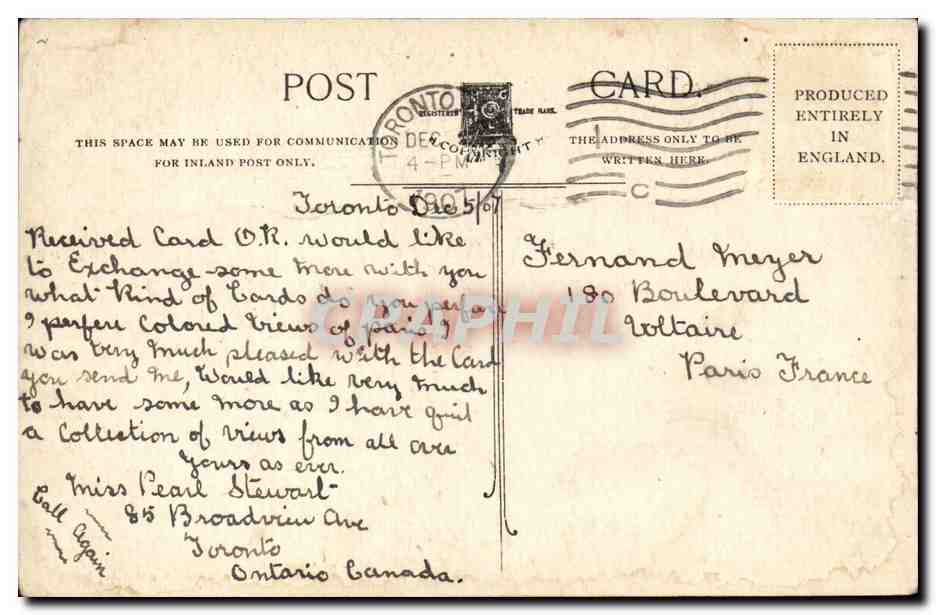 POST CARD.
REGISTERED TRADE MARK.
COPYRIGHT
THIS SPACE MAY BE USED FOR COMMUNICATION
FOR INLAND POST ONLY.
THE ADDRESS ONLY TO BE
WRITTEN HERE.
PRODUCED
ENTIRELY
IN
ENGLAND.
TORONTO
DEC
4-PM
1907
C
Toronto Dec 5/07
Received Card O.K. would like
to Exchange some more with you
what kind of Cards do you perfere
I perfere Colored Views of paris I
was very much pleased with the Card
you send me, Would like very much
to have some more as I have quit
a Collection of views from all over
yours as ever.
Miss Pearl Stewart
85 Broadview Ave
Toronto
Ontario Canada.
Call Again
Fernand Meyer
180 Boulevard
Voltaire
Paris France
CPAPHIL